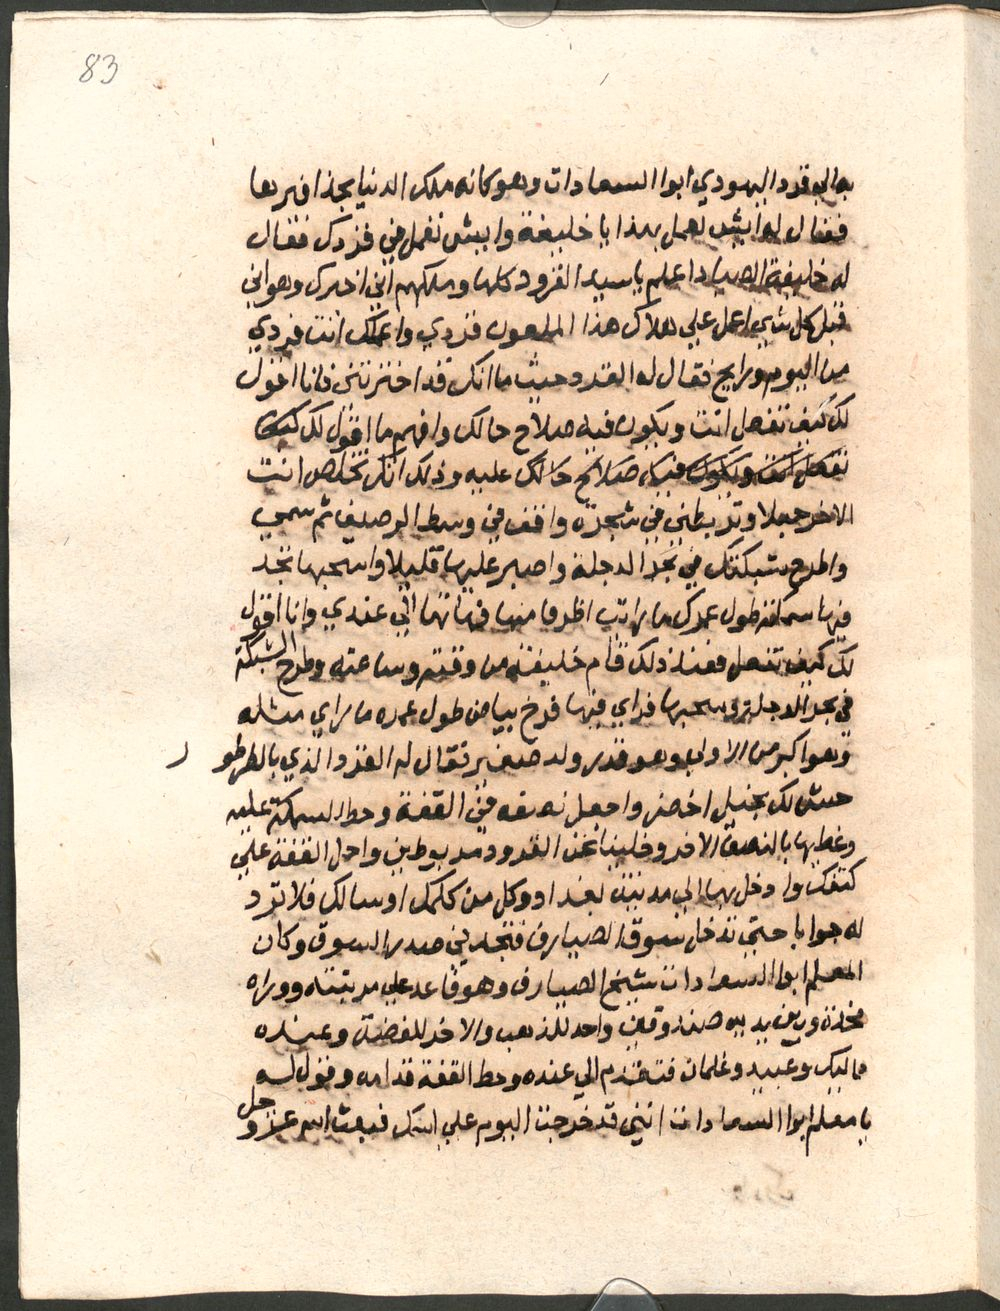 83
به الي قرد اليهودي ابوا السعادات وهو كانه ملك الدنيا بجذافيرها
فقال له ايش نعمل بهذا يا خليفة وايش تعمل في قردك فقال
له خليفة الصياد اعلم يا سيد القرود كلها وملكهم اني اخبرك وهو اني
قبل كل شي اعمل علي هلاك هذا الملعون قردي واعملك انت قردي
من اليوم ورايح فقال له القرد حيث ما انك قد اخترتني فانا اقول
لك كيف تفعل انت ويكون فيه صلاح حالك وافهم ما اقول لك كيف
تفعل انت ويكون فيه صلاح حالك عليه وذلك انك تخلص انت
الاخر حبلا وتربطني في شجرة واقف في وسط الرصيف ثم سمي
واطرح شبكتك في بحر الدجلة واصبر عليها قليلا واسحبها تجد
فيها سمكة طول عمرك ما رايت اظرف منها فهاتها الي عندي وانا اقول
لك كيف تفعل فعند ذلك قام خليفة من وقته وساعته وطرح الشبكة
في بحر الدجلة وسحبها فراي فيها فرخ بياض طول عمره ما راي مثله
وهو اكبر من الاول وهو قدر ولد صغير فقال له القرد الذي بالطرطور
حش لك نجيل اخضر واجعل نصفه في القفة وحط السمكة عليه
وغطيها بالنصف الاخر وخلينا نحن القرود مربوطين واحمل القفة علي
كتفك وادخل بها الي مدينة بغداد وكل من كلمك او سالك فلا ترد
له جوابا حتي تدخل سوق الصيارف فتجد في صدر السوق دكان
المعلم ابوا السعادات شيخ الصيارف وهو قاعد علي مرتبته ووراه
مخدة وبين يديه صندوقين واحد للذهب والاخر للفضة وعنده
مماليك وعبيد وغلمان فتقدم الي عنده وحط القفة قدامه وقول له
يا معلم ابوا السعادات انني قد خرجت اليوم علي اسمك فبعث الله عز وجل